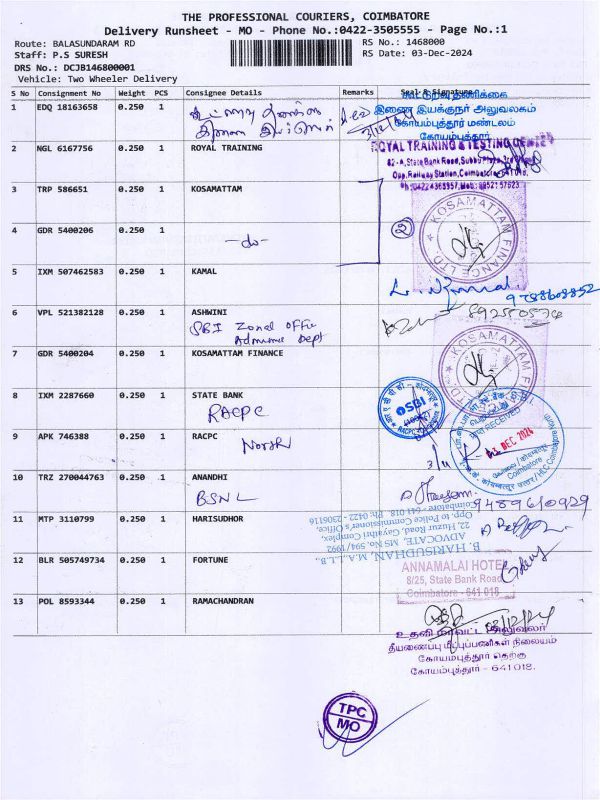 THE PROFESSIONAL COURIERS, COIMBATORE
Delivery Runsheet - MO - Phone No.:0422-3505555 - Page No.:1
Route: BALASUNDARAM RD
RS No.: 1468000
Staff: P.S SURESH
RS Date: 03-Dec-2024
DRS No.: DCJB146800001
Vehicle: Two Wheeler Delivery
S No Consignment No Weight PCS Consignee Details Remarks Seal & Signature
1 EDQ 18163658 0.250 1
3/12/24
கூட்டுறவு தணிக்கை
இணை இயக்குநர் அலுவலகம்
கோயம்புத்தூர் மண்டலம்
கோயம்புத்தூர்
2 NGL 6167756 0.250 1 ROYAL TRAINING
ROYAL TRAINING & TESTING CENTRE
82-A, State Bank Road,
Opp. Railway Station, Coimbatore - 641 018,
3 TRP 586651 0.250 1 KOSAMATTAM
KOSAMATTAM FINANCE LTD
4 GDR 5400206 0.250 1
-do-
2
5 IXM 507462583 0.250 1 KAMAL
9788608852
6 VPL 521382128 0.250 1 ASHWINI
SBI Zonal Office
Dept
7 GDR 5400204 0.250 1 KOSAMATTAM FINANCE
KOSAMATTAM FINANCE LTD
8 IXM 2287660 0.250 1 STATE BANK
RACPC
SBI
RECEIVED
3 DEC 2024
Coimbatore
9 APK 746388 0.250 1 RACPC
10 TRZ 270044763 0.250 1 ANANDHI
BSNL
9489610929
11 MTP 3110799 0.250 1 HARISUDHOR
B. HARISUDHAN, M.A., B.L.,
ADVOCATE, MS NO. 594 / 1992
22, Huzur Road, Gayathri Complex,
Opp. to Police Commissioner's Office,
Coimbatore - 641 018. Ph: 0422 - 2306116
12 BLR 505749734 0.250 1 FORTUNE
ANNAMALAI HOTEL
8/25, State Bank Road
Coimbatore - 641 018
13 POL 8593344 0.250 1 RAMACHANDRAN
03/12/24
உதவி மாவட்ட அலுவலர்
தீயணைப்பு மீட்புப்பணிகள் நிலையம்
கோயம்புத்தூர் தெற்கு
கோயம்புத்தூர் - 641018.
TPC
MO